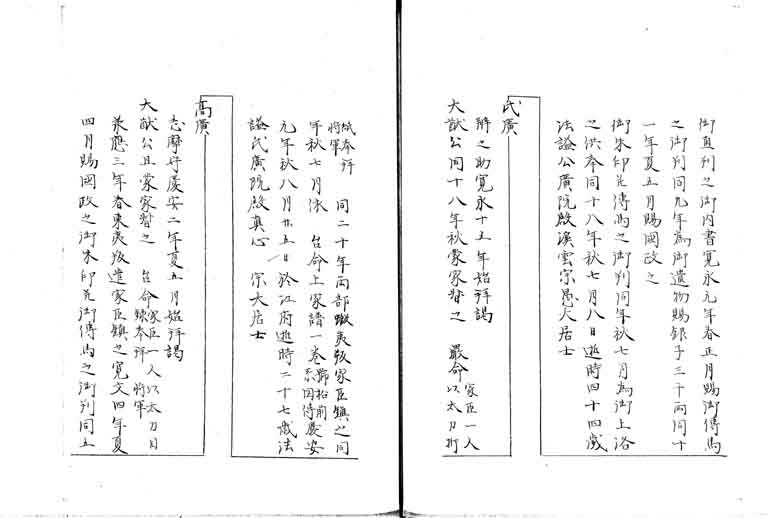 御直判之御内書寛永元年春正月賜御傳馬
之御判同九年為御遺物賜銀子三千両同十
一年夏五月賜國改之
御朱印并傳馬之御判同年秋七月為御上洛
之洪奉同十八年秋七月八日逝時四十四歳
法謚公廣院殿溪雲宗愚大居士
氏廣
辨之助寛永十五年始拜謁
大猷公同十八年秋蒙家督之 嚴命家臣一人以太刀折
紙奉拜将軍 同二十年西部蝦夷叛家臣鎮之同
年秋七月依 台命上家譜一巻 慶安
元年秋八月廿五日於江府逝時二十七歳法
謚氏廣院殿真心 宗大居士
高廣
志摩守慶安二年夏五月始拜謁
大猷公且蒙家督之 台命家臣一人以太刀目録奉拜将軍
承應三年春東夷叛遣家臣鎮之寛文四年夏
四月賜國政之御朱印并御傳馬之御判同五